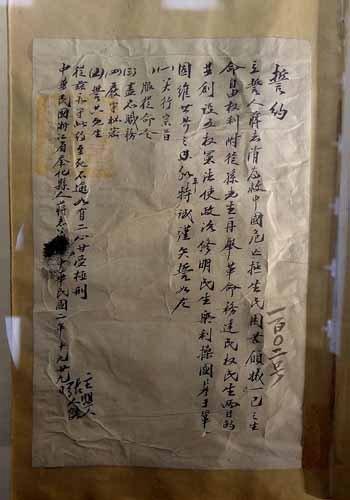 一百〇二号
誓約
立誓人蔣志清為救中國危亡拯生民困苦願犧一己之生
命自由權利附從孫先生再舉革命務達民權民生兩目的
並創設五權憲法使政治修明民生樂利措國基于鞏
固維世界之和平特誠謹矢誓如左
(一)实行宗旨
(二)服從命令
(三)盡忠職務
(四)嚴守秘密
(五)誓共死生
從茲永守此約至死不渝如有二心甘受極刑
中華民國浙江省奉化縣人蔣志 中華民國二年十月廿九日
主盟人